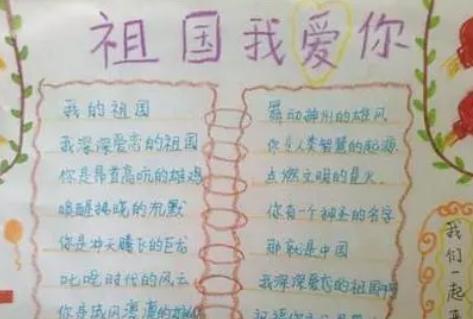 祖国我爱你
我的祖国
我深深爱恋的祖国
你是昂首高吭的雄鸡
唤醒拂晓的沉默
你是冲天腾飞的巨龙
叱咤时代的风云
你是威风凛凛的雄狮
舞动神州的雄风
你是人类智慧的起源
点燃文明的星火
你有一个神圣的名字
那就是中国
我深深爱恋的祖国啊
我们一起